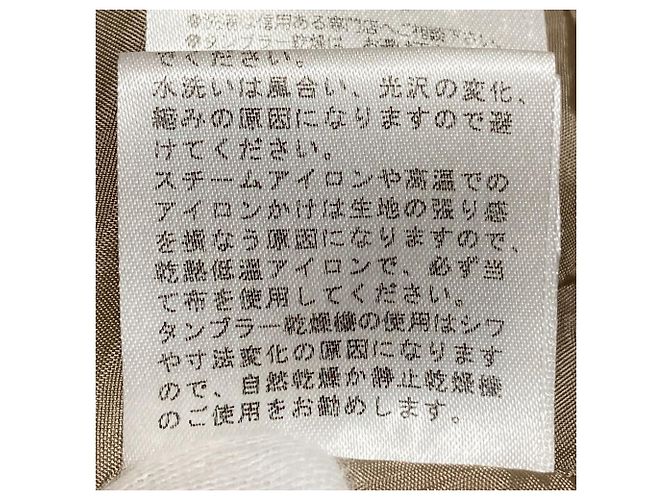 ●乾燥は信用ある専門店へご相談下さい
●タンブラー乾燥は、お避け
てください。
水洗いは風合い、光沢の変化、
縮みの原因になりますので避
けてください。
スチームアイロンや高温での
アイロンかけは生地の張り感
を損なう原因になりますので、
乾熱低温アイロンで、必ず当
て布を使用してください。
タンブラー乾燥機の使用はシワ
や寸法変化の原因になります
ので、自然乾燥か静止乾燥機
のご使用をお勧めします。